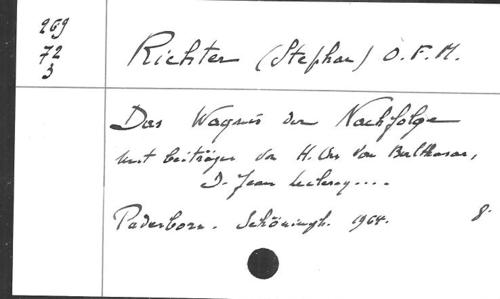 269
72
3
Richter (Stephan) O.F.M.
Das Wagnis der Nachfolge
mit beiträgen von H. Urs von Balthasar,
D. Jean Leclercq....
Paderborn. Schöningh. 1964. 8°